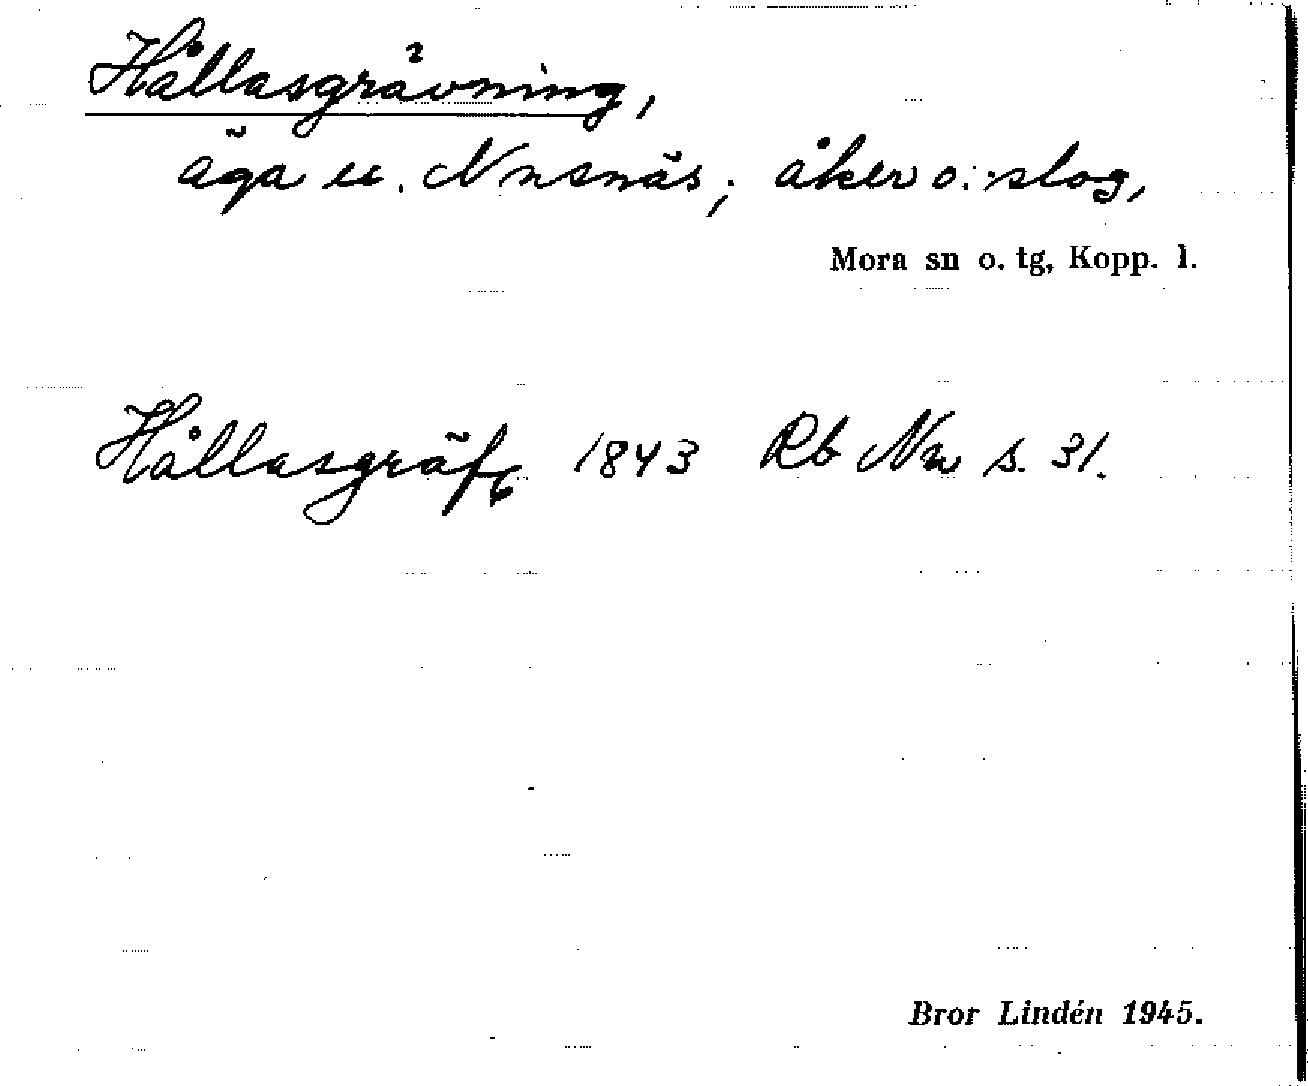 Hållasgrävning,
äga u. Nusnäs; åker o. slog,
Mora sn o. tg, Kopp. l.
Hållasgräfg 1843 Rb Nus s. 31.
Bror Lindén 1945.